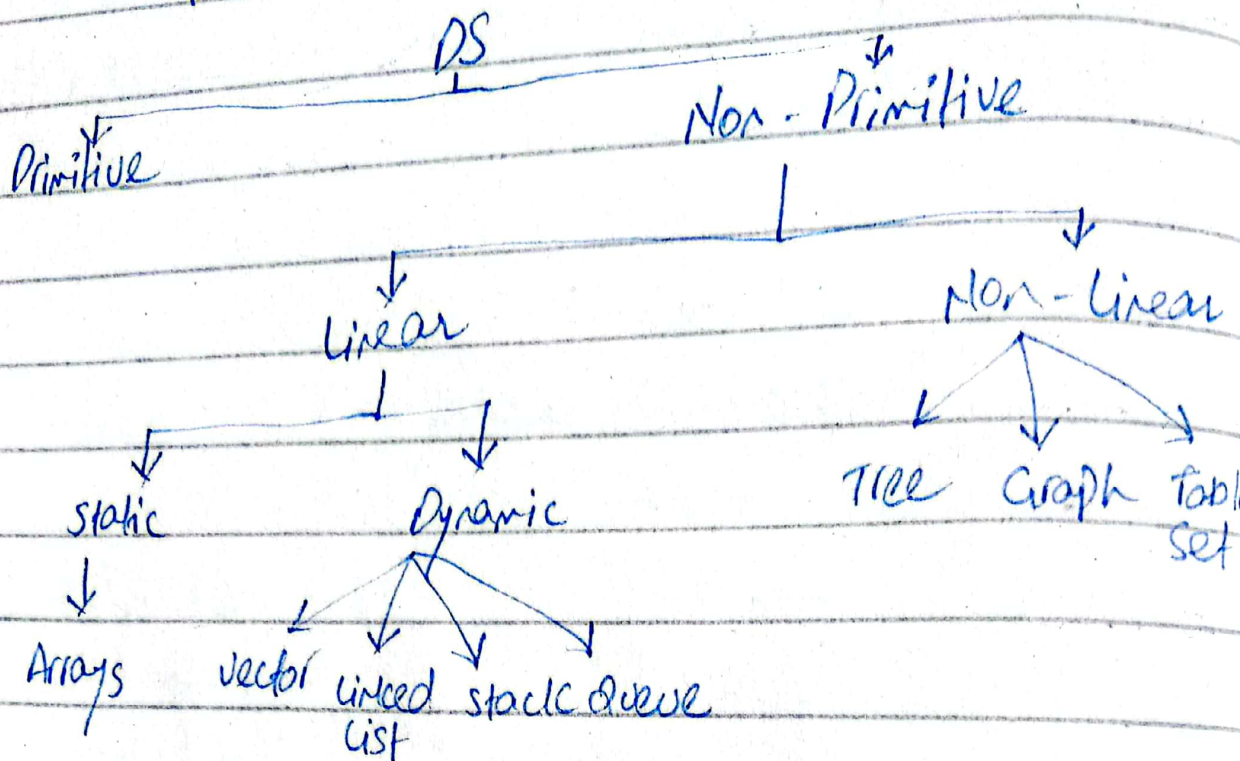 DS
Primitive
Non - Primitive
Linear
Non - Linear
static
Dynamic
Tree Graph
Set
Arrays vector Linked stack Queue
List